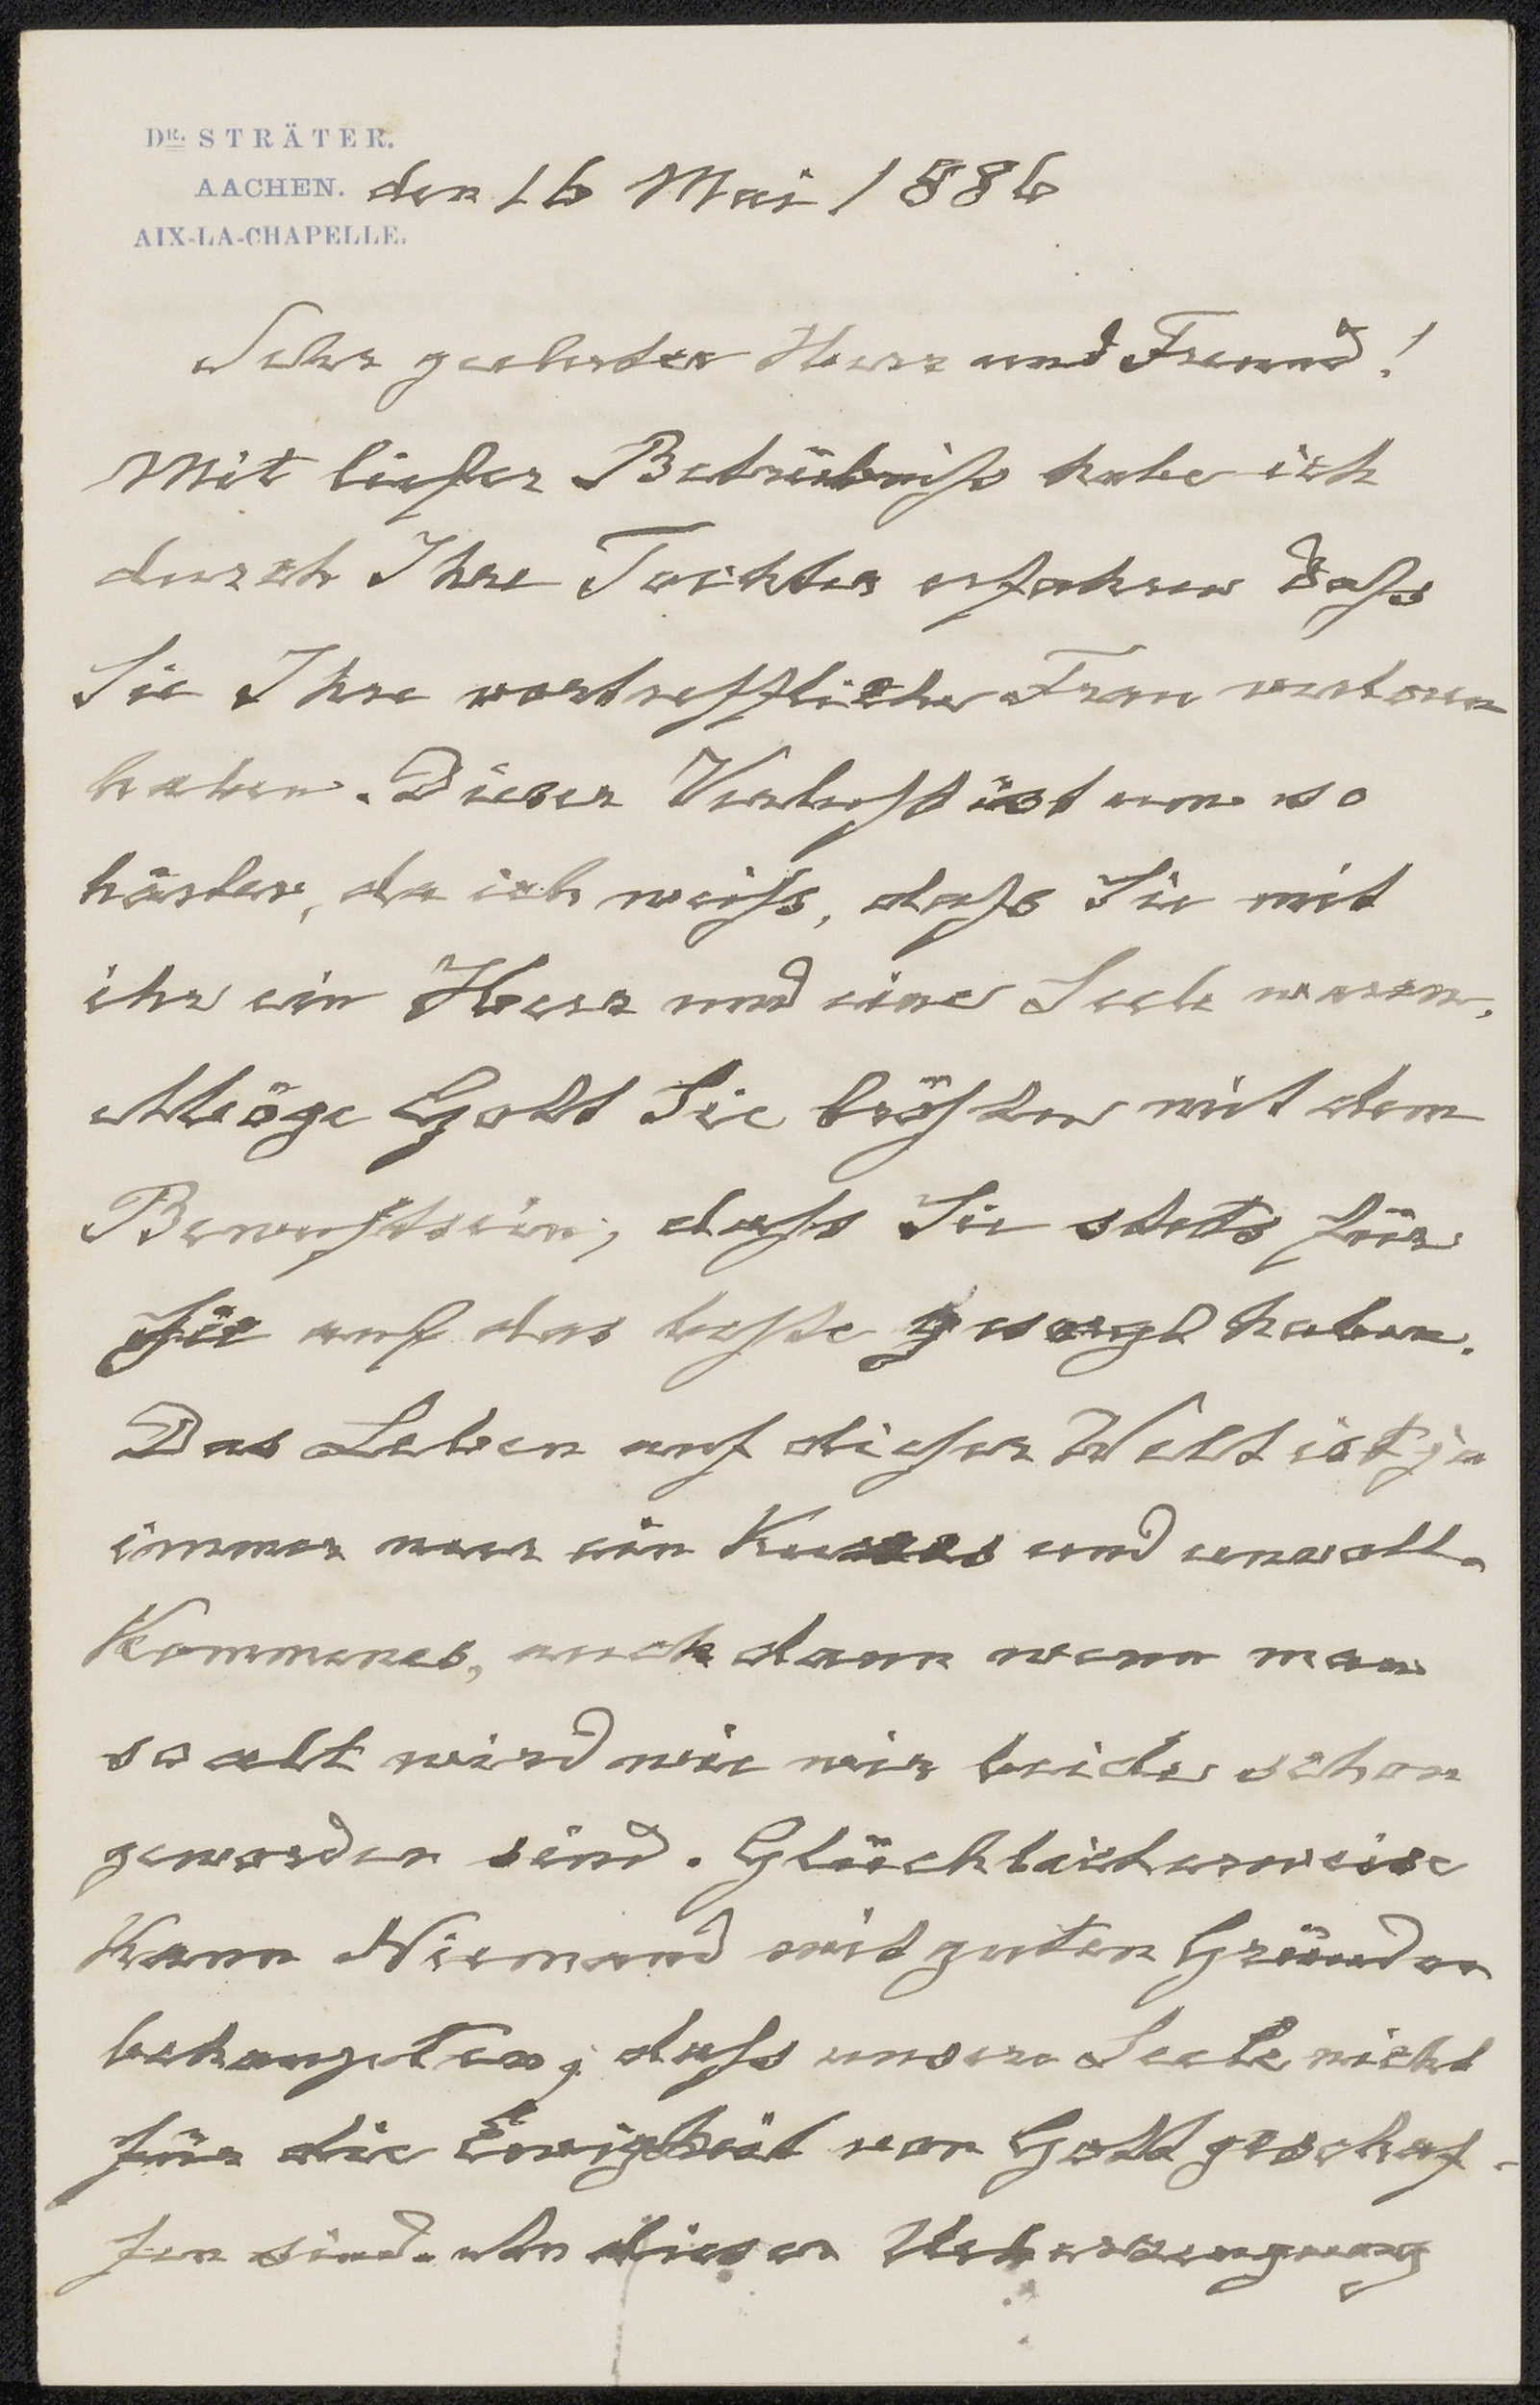 DR. STRÄTER.
AACHEN. den 16 Mai 1886
AIX-LA-CHAPELLE.
Sehr geehrter Herr und Freund!
Mit tiefer Betrübniss habe ich
durch Ihre Tochter erfahren dass
Sie Ihre vortreffliche Frau verloren
haben. Dieser Verlust ist um so
härter, da ich weiss, dass Sie mit
ihr ein Herz und eine Seele waren.
Möge Gott Sie trösten mit dem
Bewusstsein, dass Sie stets für
Sie auf das beste gesorgt haben.
Das Leben auf dieser Welt ist ja
immer nur ein Kurzes und unvoll-
kommenes, auch dann wenn man
so alt wird wie wir beide schon
geworden sind. Glücklicherweise
kann Niemand mit guten Gründen
behaupten, dass unsere Seele nicht
für die Ewigkeit von Gott geschaf-
fen sind. In dieser Ueberzeugung